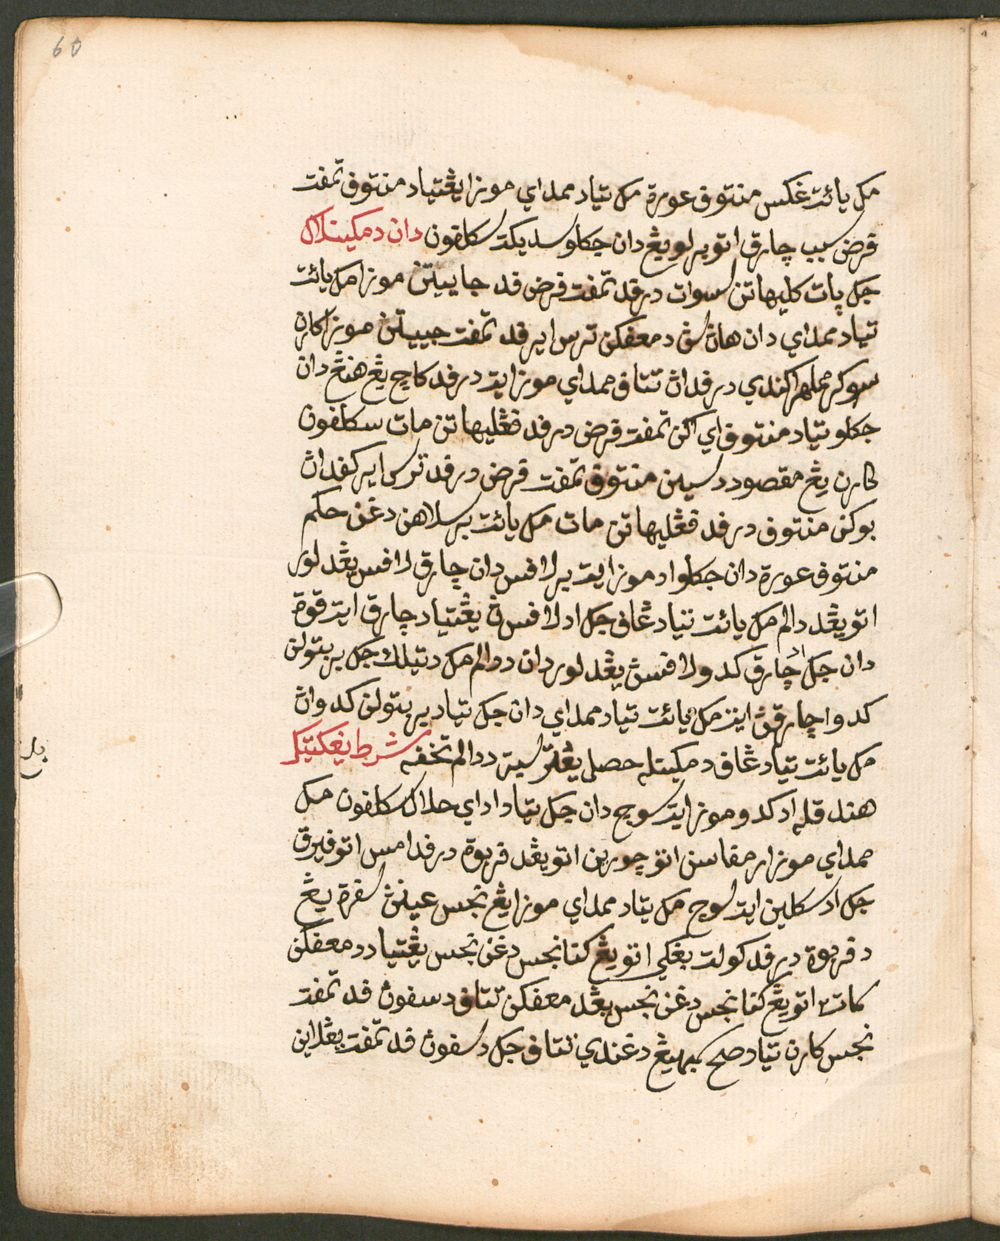 60
مك يائت غكس منتوف عورة مك تياد ممداي موزا يڠتياد منتوف تمفت
فرض سبب چارق اتو برلوبڠ دان جكلو سديكت سكلفون دان دمكينلاك
جك پات كليهاتن لسوات درفد تمفت فرض فد جاييتن موزا مك يائت
تياد ممداي دان هاث لث دمعفكن ترس اير فد تمفت جييتن موزا كارن
سوكر مملهراكندي درفداث تتاف ممداي موزا ايت درفد كاچ يڠ هنڠ دان
جكلو تياد منتوف اي اكن تمفت فرض درفد فڠليهاتن مات سكلفون
كارن يڠ مقصود دسين منتوف تمفت فرض درفد ترس اير كفداث
بوكن منتوف درفد فڠليهاتن مات مك يائت برسلاهن دغن حكم
منتوف عورة دان جكلو اد موزا ايت برلافس دان چارق لافس يڠد لور
اتو يڠد دالم مك يائت تياد ڠاف جك اد لافس ث يڠتياد چارق ايت قوة
دان جك اد چارق كدو لافسث يڠد لور دان ددالم مك دتيلك جك بربتولن
كدوا چارقث اين مك يائت تياد ممداي دان جك تياد بربتولن كدواث
مك يائت تياد ڠاف دمكينله حصل يڠتر ليت ددالم تحفه شرط يڠكتيك
هندقله اد كدو موزا ايت سوچ دان جك تياد اداي حلال سكلفون مك
ممداي موزا رمفاسن اتو چورين اتو يڠد فربوة درفد امس اتو فيرق
جك اد سكلين ايت لوچ مك تياد ممداي موزا يڠ نجس عينث لفرة يڠ
دفربوة درفد كولت بڠكي اتو يڠ كنا نجس دغن نجس يڠتياد دمعفكن
كات٢ اتو يڠ كنا نجس دغن نجس يڠد معفكن تتاف دسفوث فد تمفت
نجس كارن تياد صح سمبهيڠ دغندي تتاف جك دسفوث فد تمفت يڠلاين